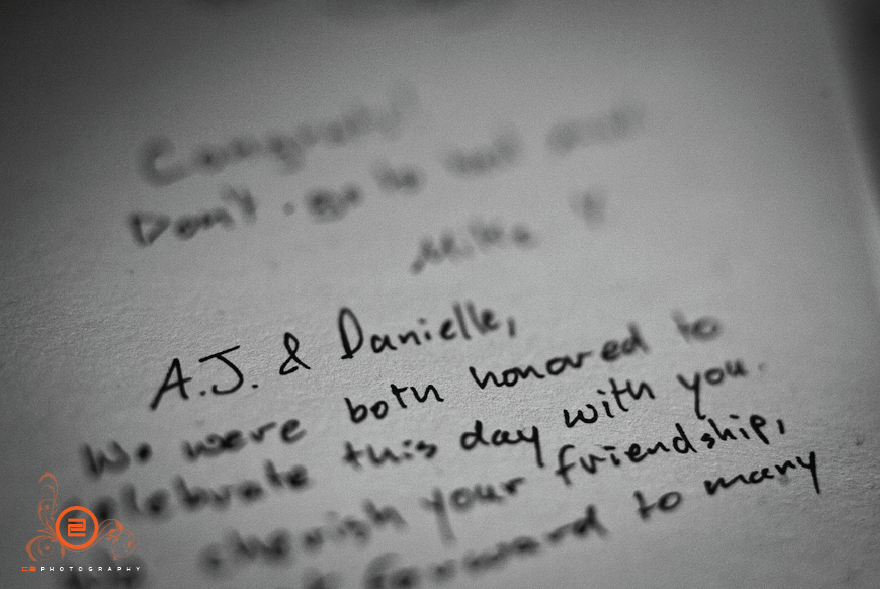 Congrats!
Don't go to bed
Mike
A.J. & Danielle,
We were both honored to
celebrate this day with you.
We cherish your friendship,
forward to many
C2 PHOTOGRAPHY